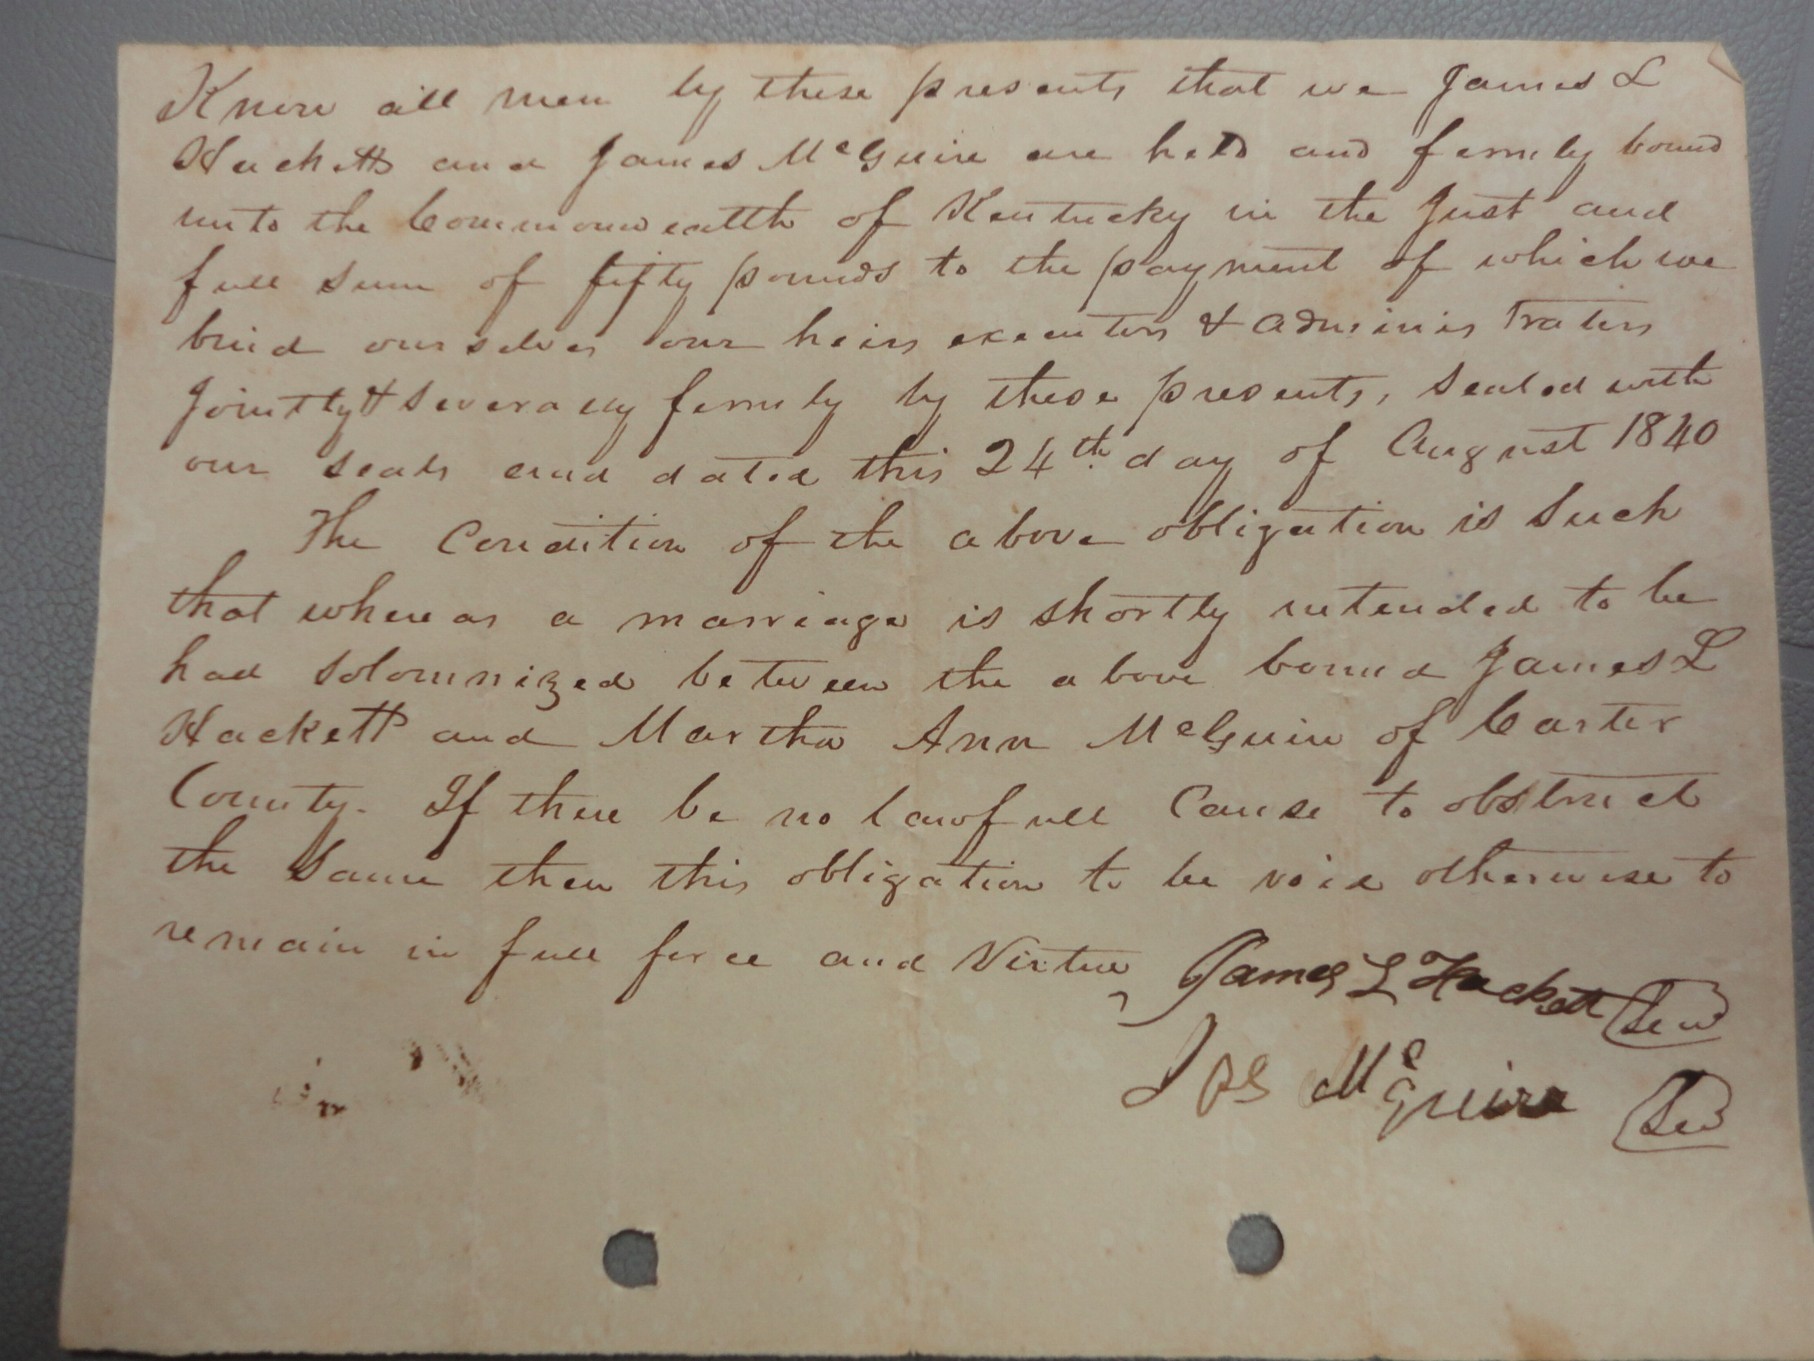 Know all men by these presents that we James L
Hackett and James McGuire are held and fermly bound
unto the Commonwealth of Kentucky in the Just and
full sum of fifty pounds to the payment of which we
bind ourselves our heirs executors & administrators
Jointly & severally fermly by these presents, sealed with
our seals and dated this 24th day of August 1840
The Condition of the above obligation is Such
that whereas a marriage is shortly intended to be
had solomnized between the above bound James L
Hackett and Martha Ann McGuire of Carter
County. If there be no lawfull Cause to obstruct
the Same then this obligation to be void otherwise to
remain in full force and Virtue
James L Hackett
Jas McGuire